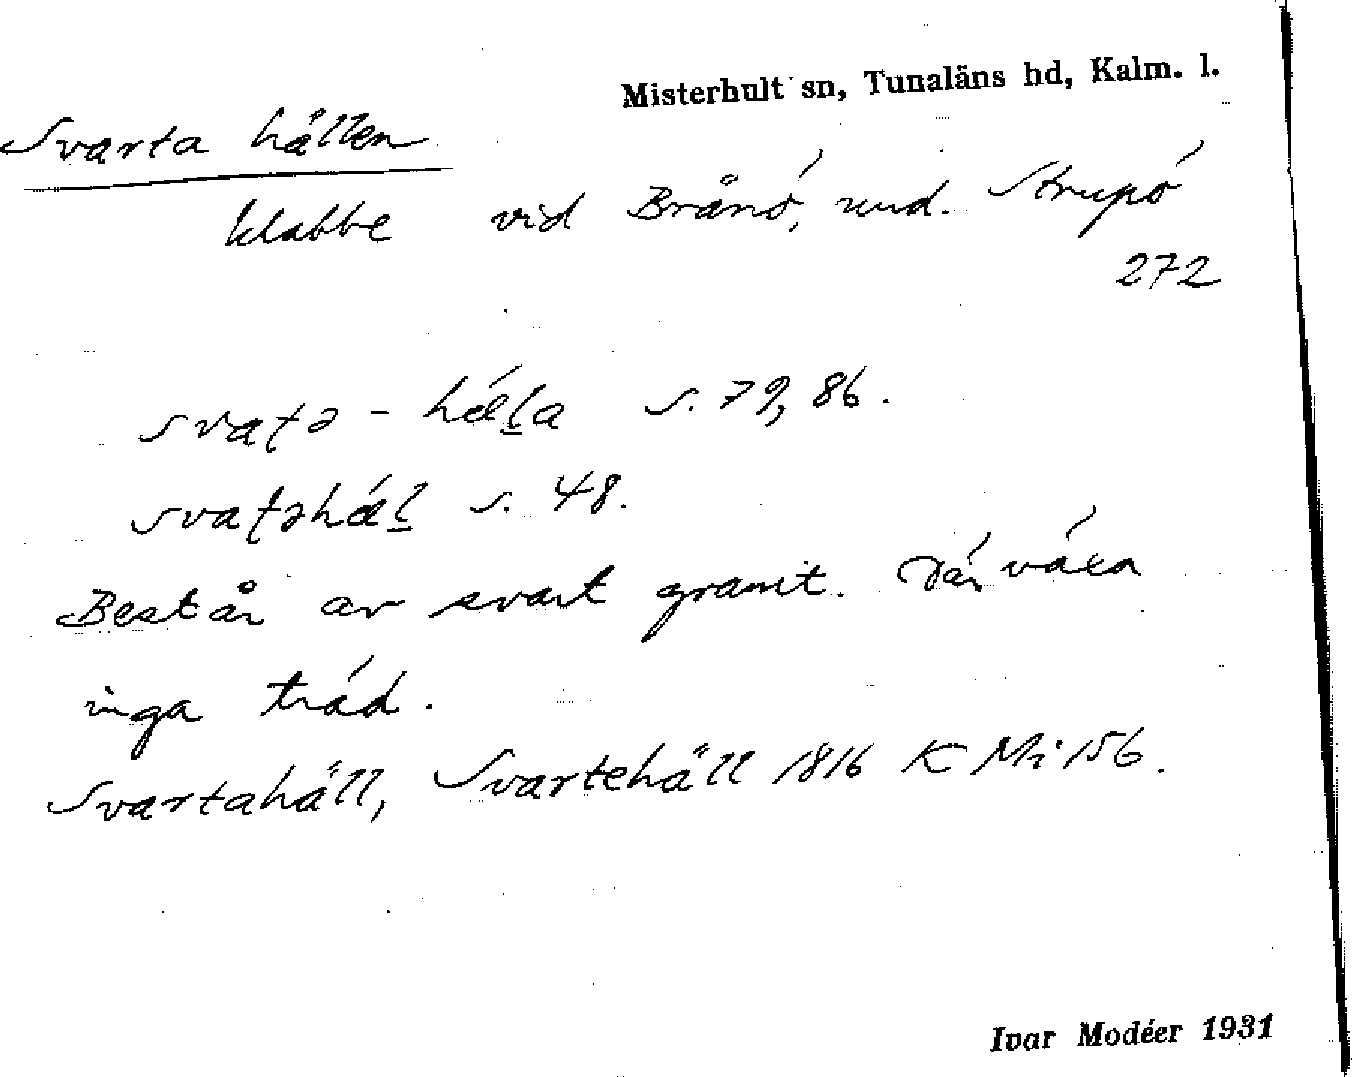 Misterhult sn, Tunaläns hd, Kalm. l.
Svarta hällen
klabbe vid Brånö, und. Strupö
272
svaʈə - hǽḷa s. 79, 86.
svaʈəhǽḷ s. 48.
Består av svart granit. Där växa
inga träd.
Svartahäll, Svartehäll 1816 K Mi 156.
Ivar Modéer 1931